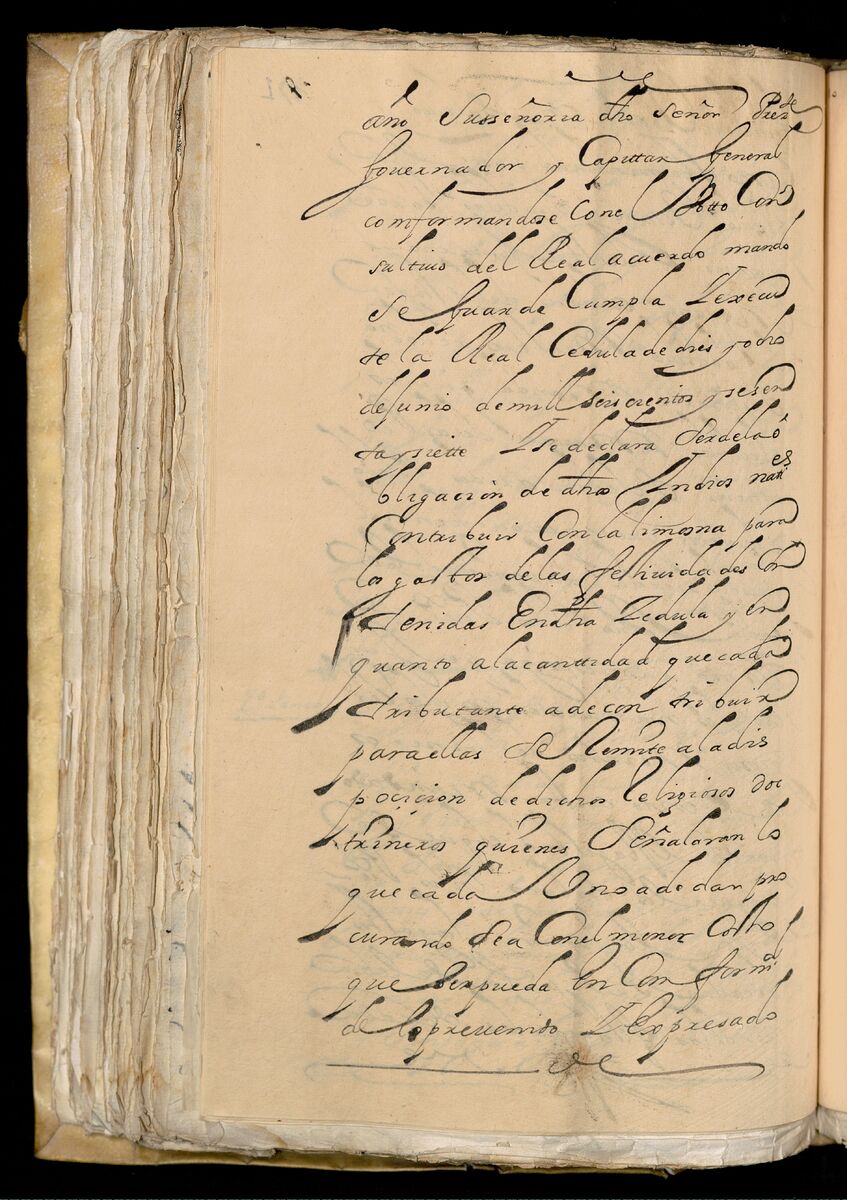 año Susseñoria dho señor Presde
Governador y Capittan General
comformandose Con el Botto Con
sultivo del Real acuerdo mando
se Guarde Cumpla Y execu
te la Real Cedula de dies y ocho
de Junio de mill seiscientos y sesen
ta y siette Y se declara Ser de la o
bligacion de dhos Yndios natles
Contribuir Con la limosna para
los gastos de las festtividades Con
tenidas En dha Zedula y en
quanto a la canttidad que cada
tributante a de con tribuir
para ellas Se Remite a la dis
pocicion de dichos Religiosos doc
trineros quienes Señalaran lo
que cada Uno a de dar pro
curando Sea Con el menor Costto
que Ser pueda En Con formd
de lo prevenido Y Expresado